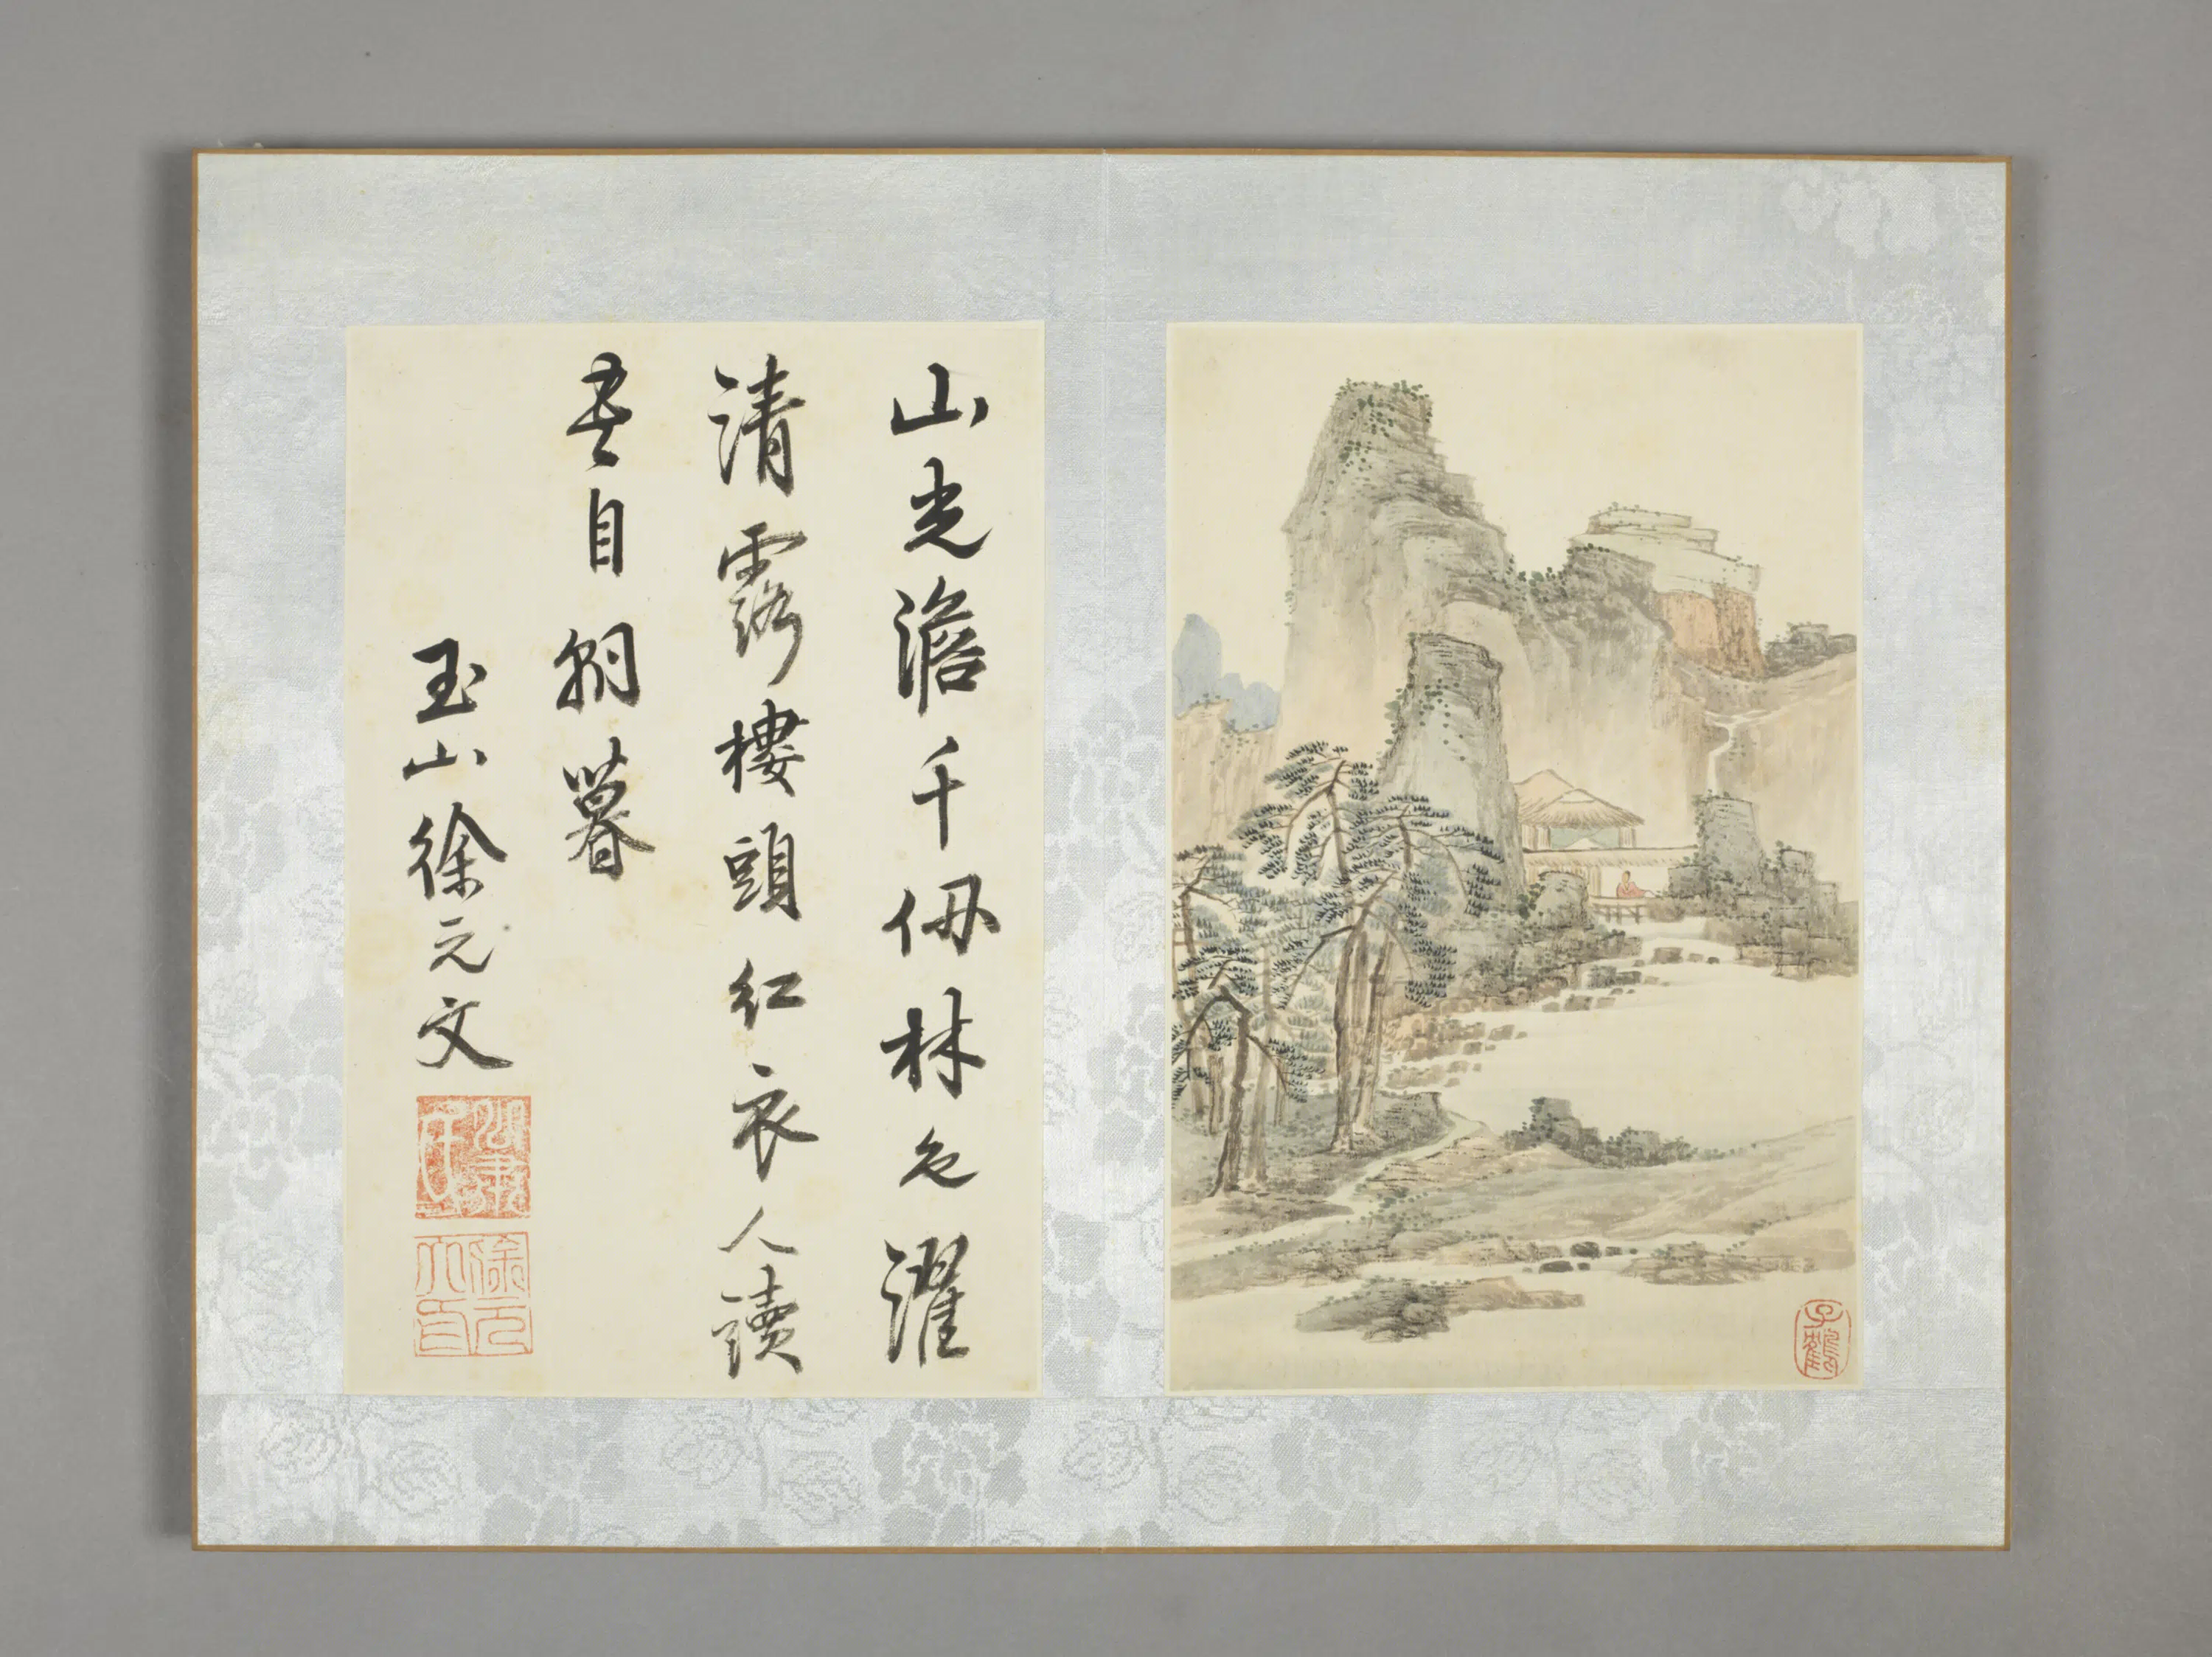 山光澹千仞林色濯
清露樓頭紅衣人讀
書自朝暮
玉山徐元文
公肅
徐元文印
子鶴